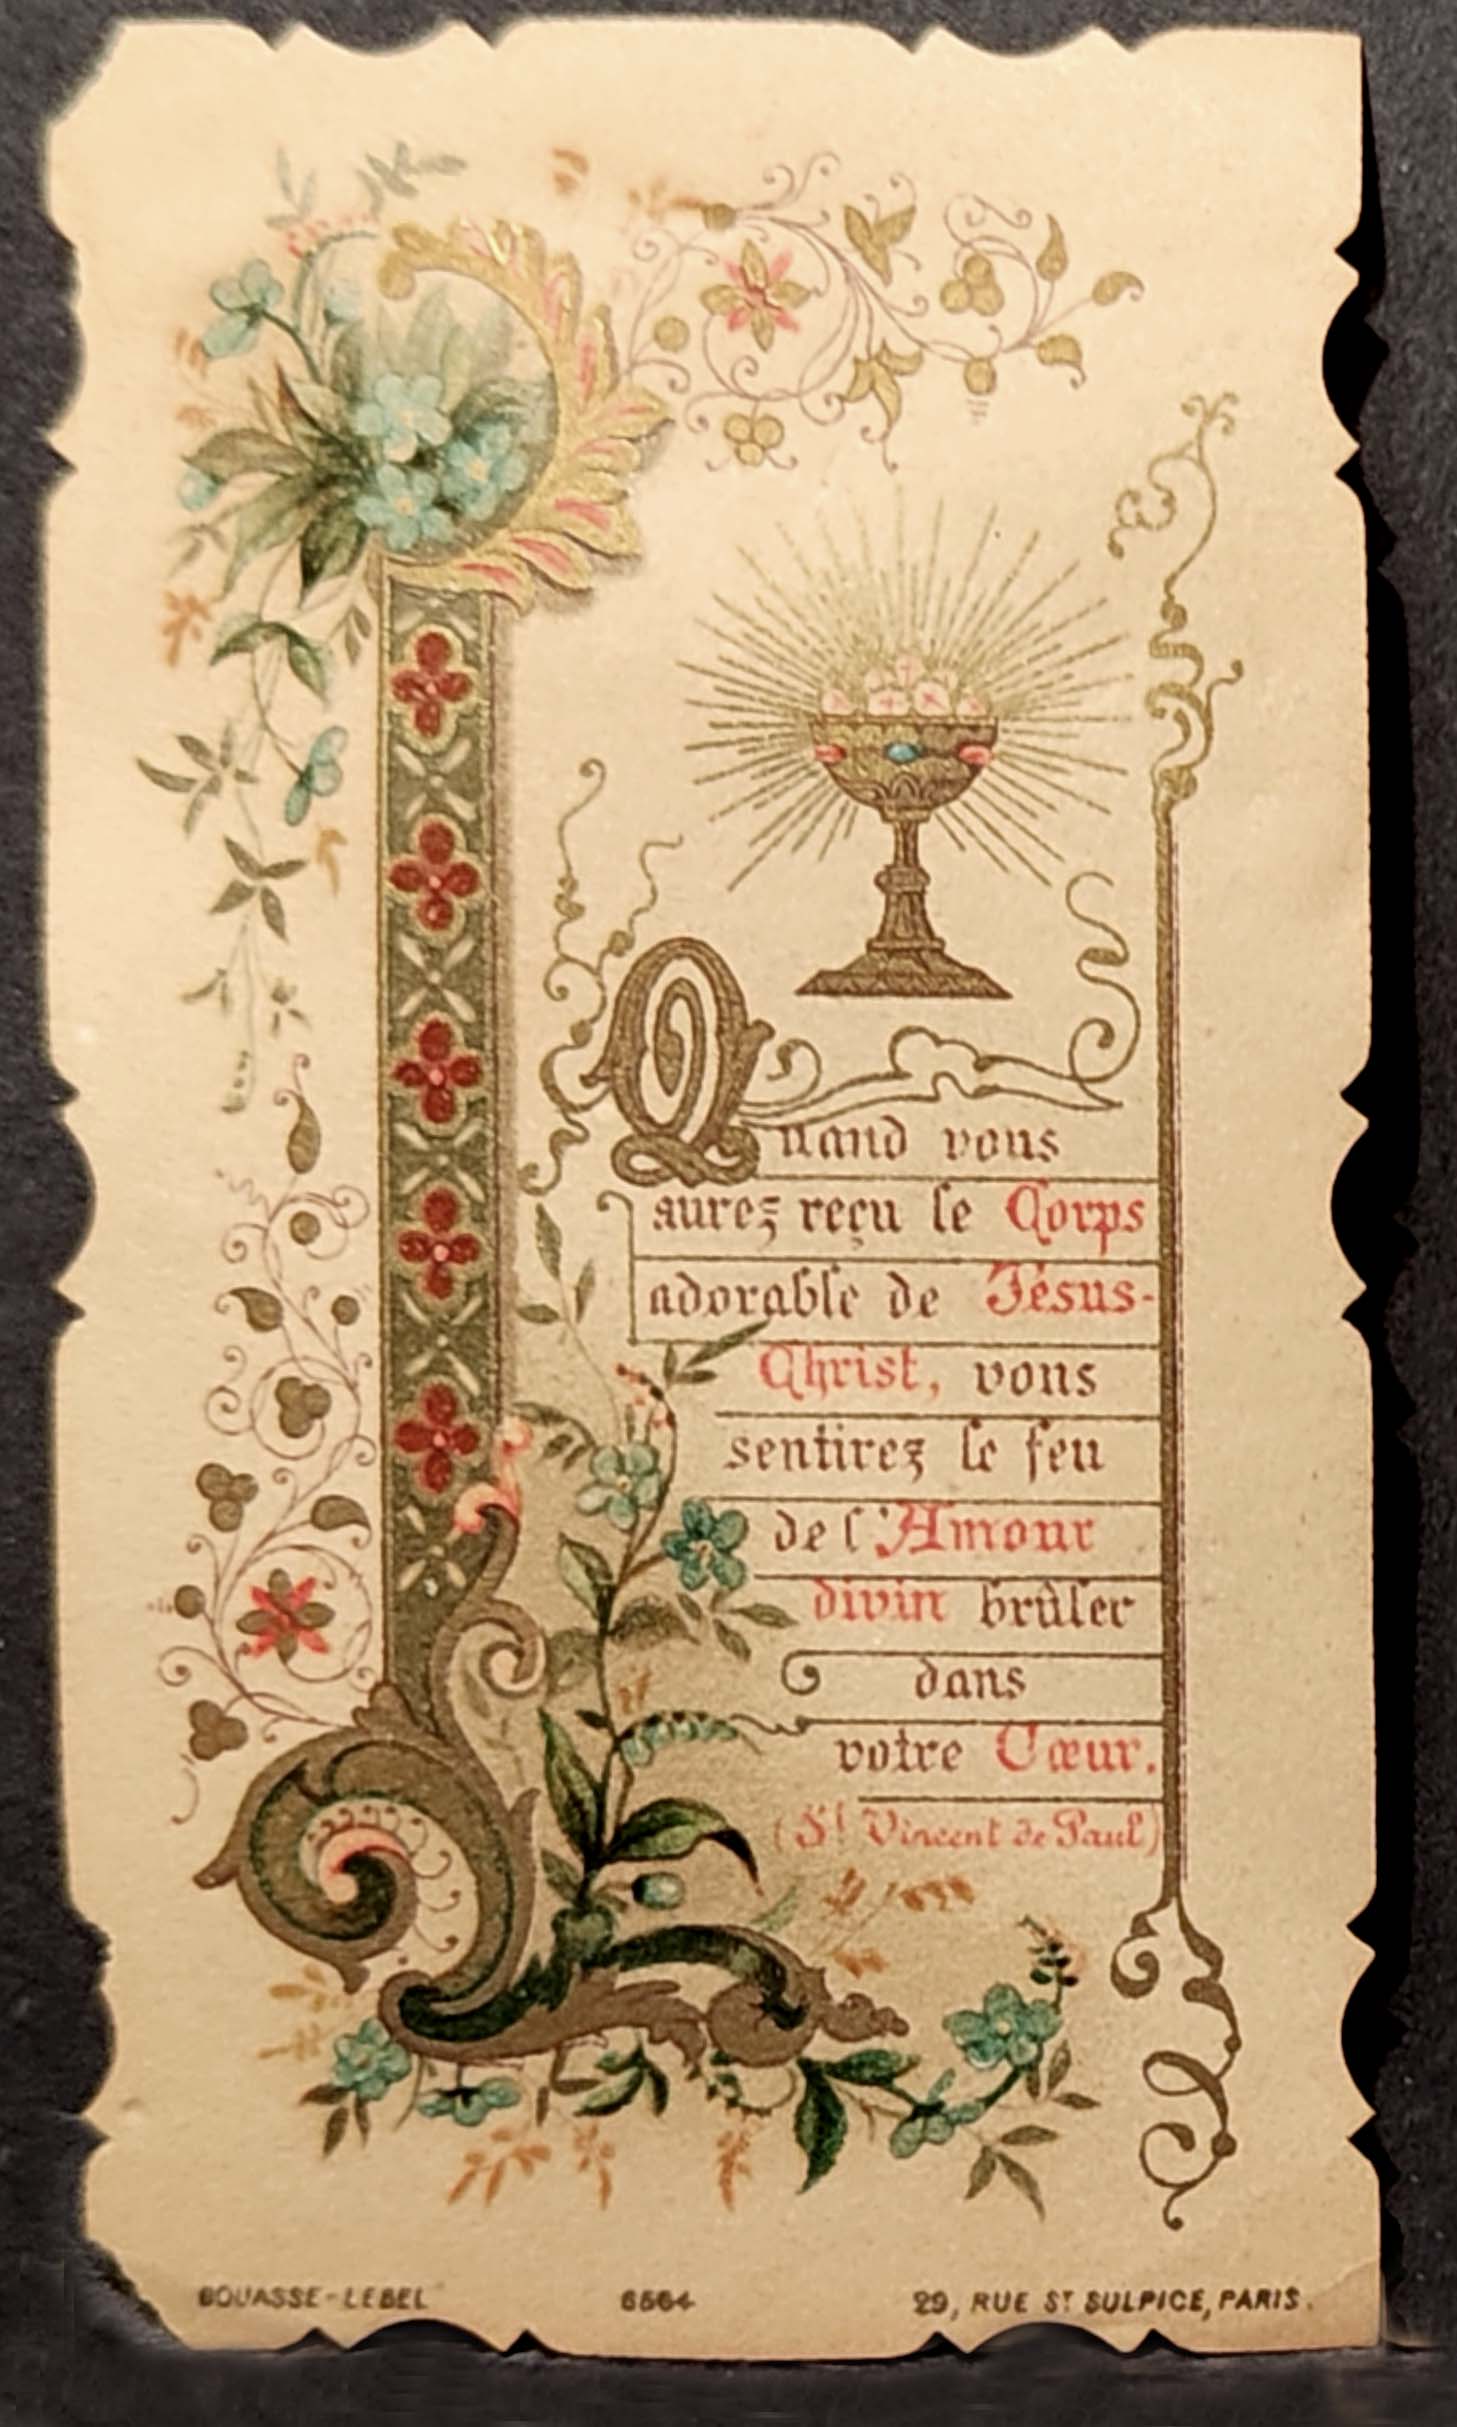 Quand vous
aurez reçu le Corps
adorable de Jésus-
Christ, vous
sentirez le feu
de l'Amour
divin brûler
dans
votre Cœur.
(St Vincent de Paul)
BOUASSE-LEBEL 6564 29, RUE ST SULPICE, PARIS.